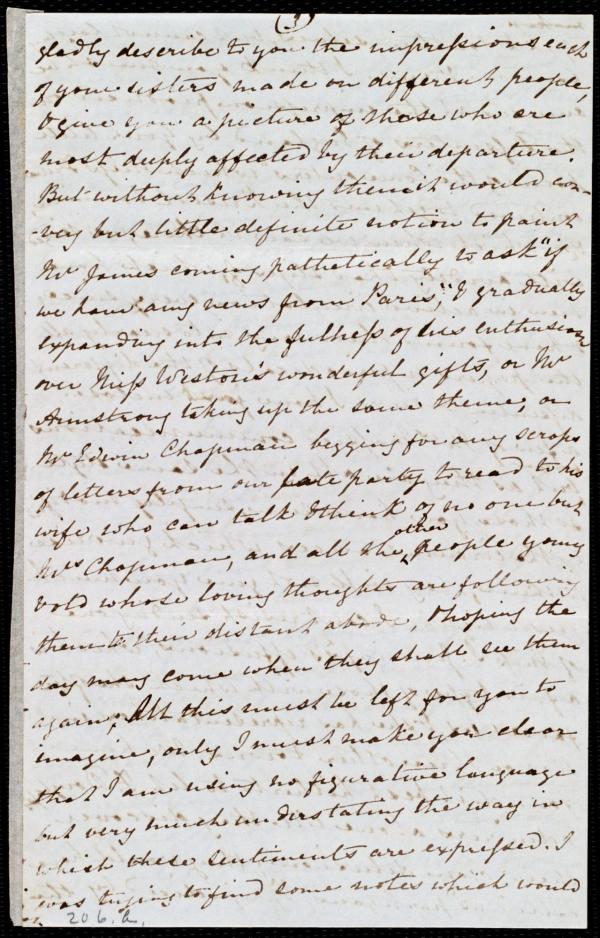 (3)
gladly describe to you the impressions each
of your sisters made on different people,
& give you a picture of those who are
most deeply affected by their departure.
But without knowing them it would con-
-vey but little definite notion to paint
Mr James coming pathetically to ask "if
we have any news from Paris," & gradually
expanding into the fulness of his enthusiasm
over Miss Weston's wonderful gifts, or Mr
Armstrong taking up the same theme, or
Mr Edwin Chapman begging for any scraps
of letters from our late party to read to his
wife who can talk & think of no one but
Mrs Chapman, and all the other people young
& old whose loving thoughts are following
them to their distant abode, & hoping the
day may come when they shall see them
again; All this must be left for you to
imagine, only I must make you clear
that I am using no figurative language
but very much understating the way in
which these sentiments are expressed. I
was trying to find some notes which would
206. a.